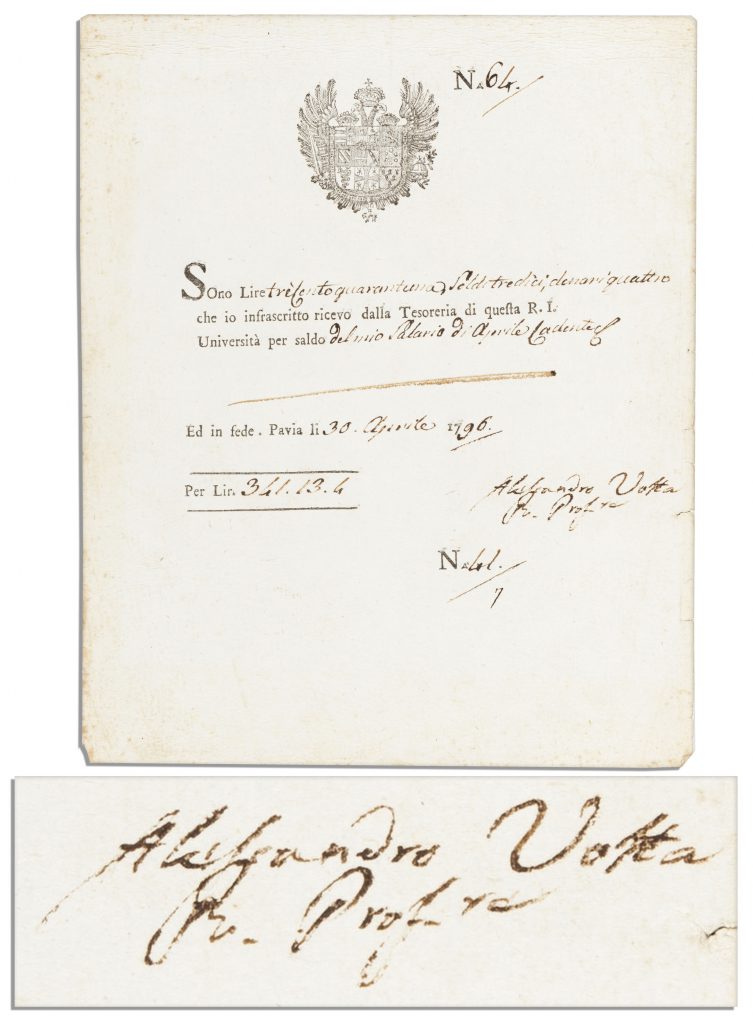 N.º 64.
SOno Lire trecento quarantuna, Soldi tredici, denari quattro
che io infrascritto ricevo dalla Tesoreria di questa R. I.
Università per saldo del mio Salario di Aprile Cadente
Ed in fede. Pavia li 30. Aprile 1796.
Per Lir. 341.13.4
Alessandro Volta
Prof.re
N.º 41.
7
Alessandro Volta
Prof.re